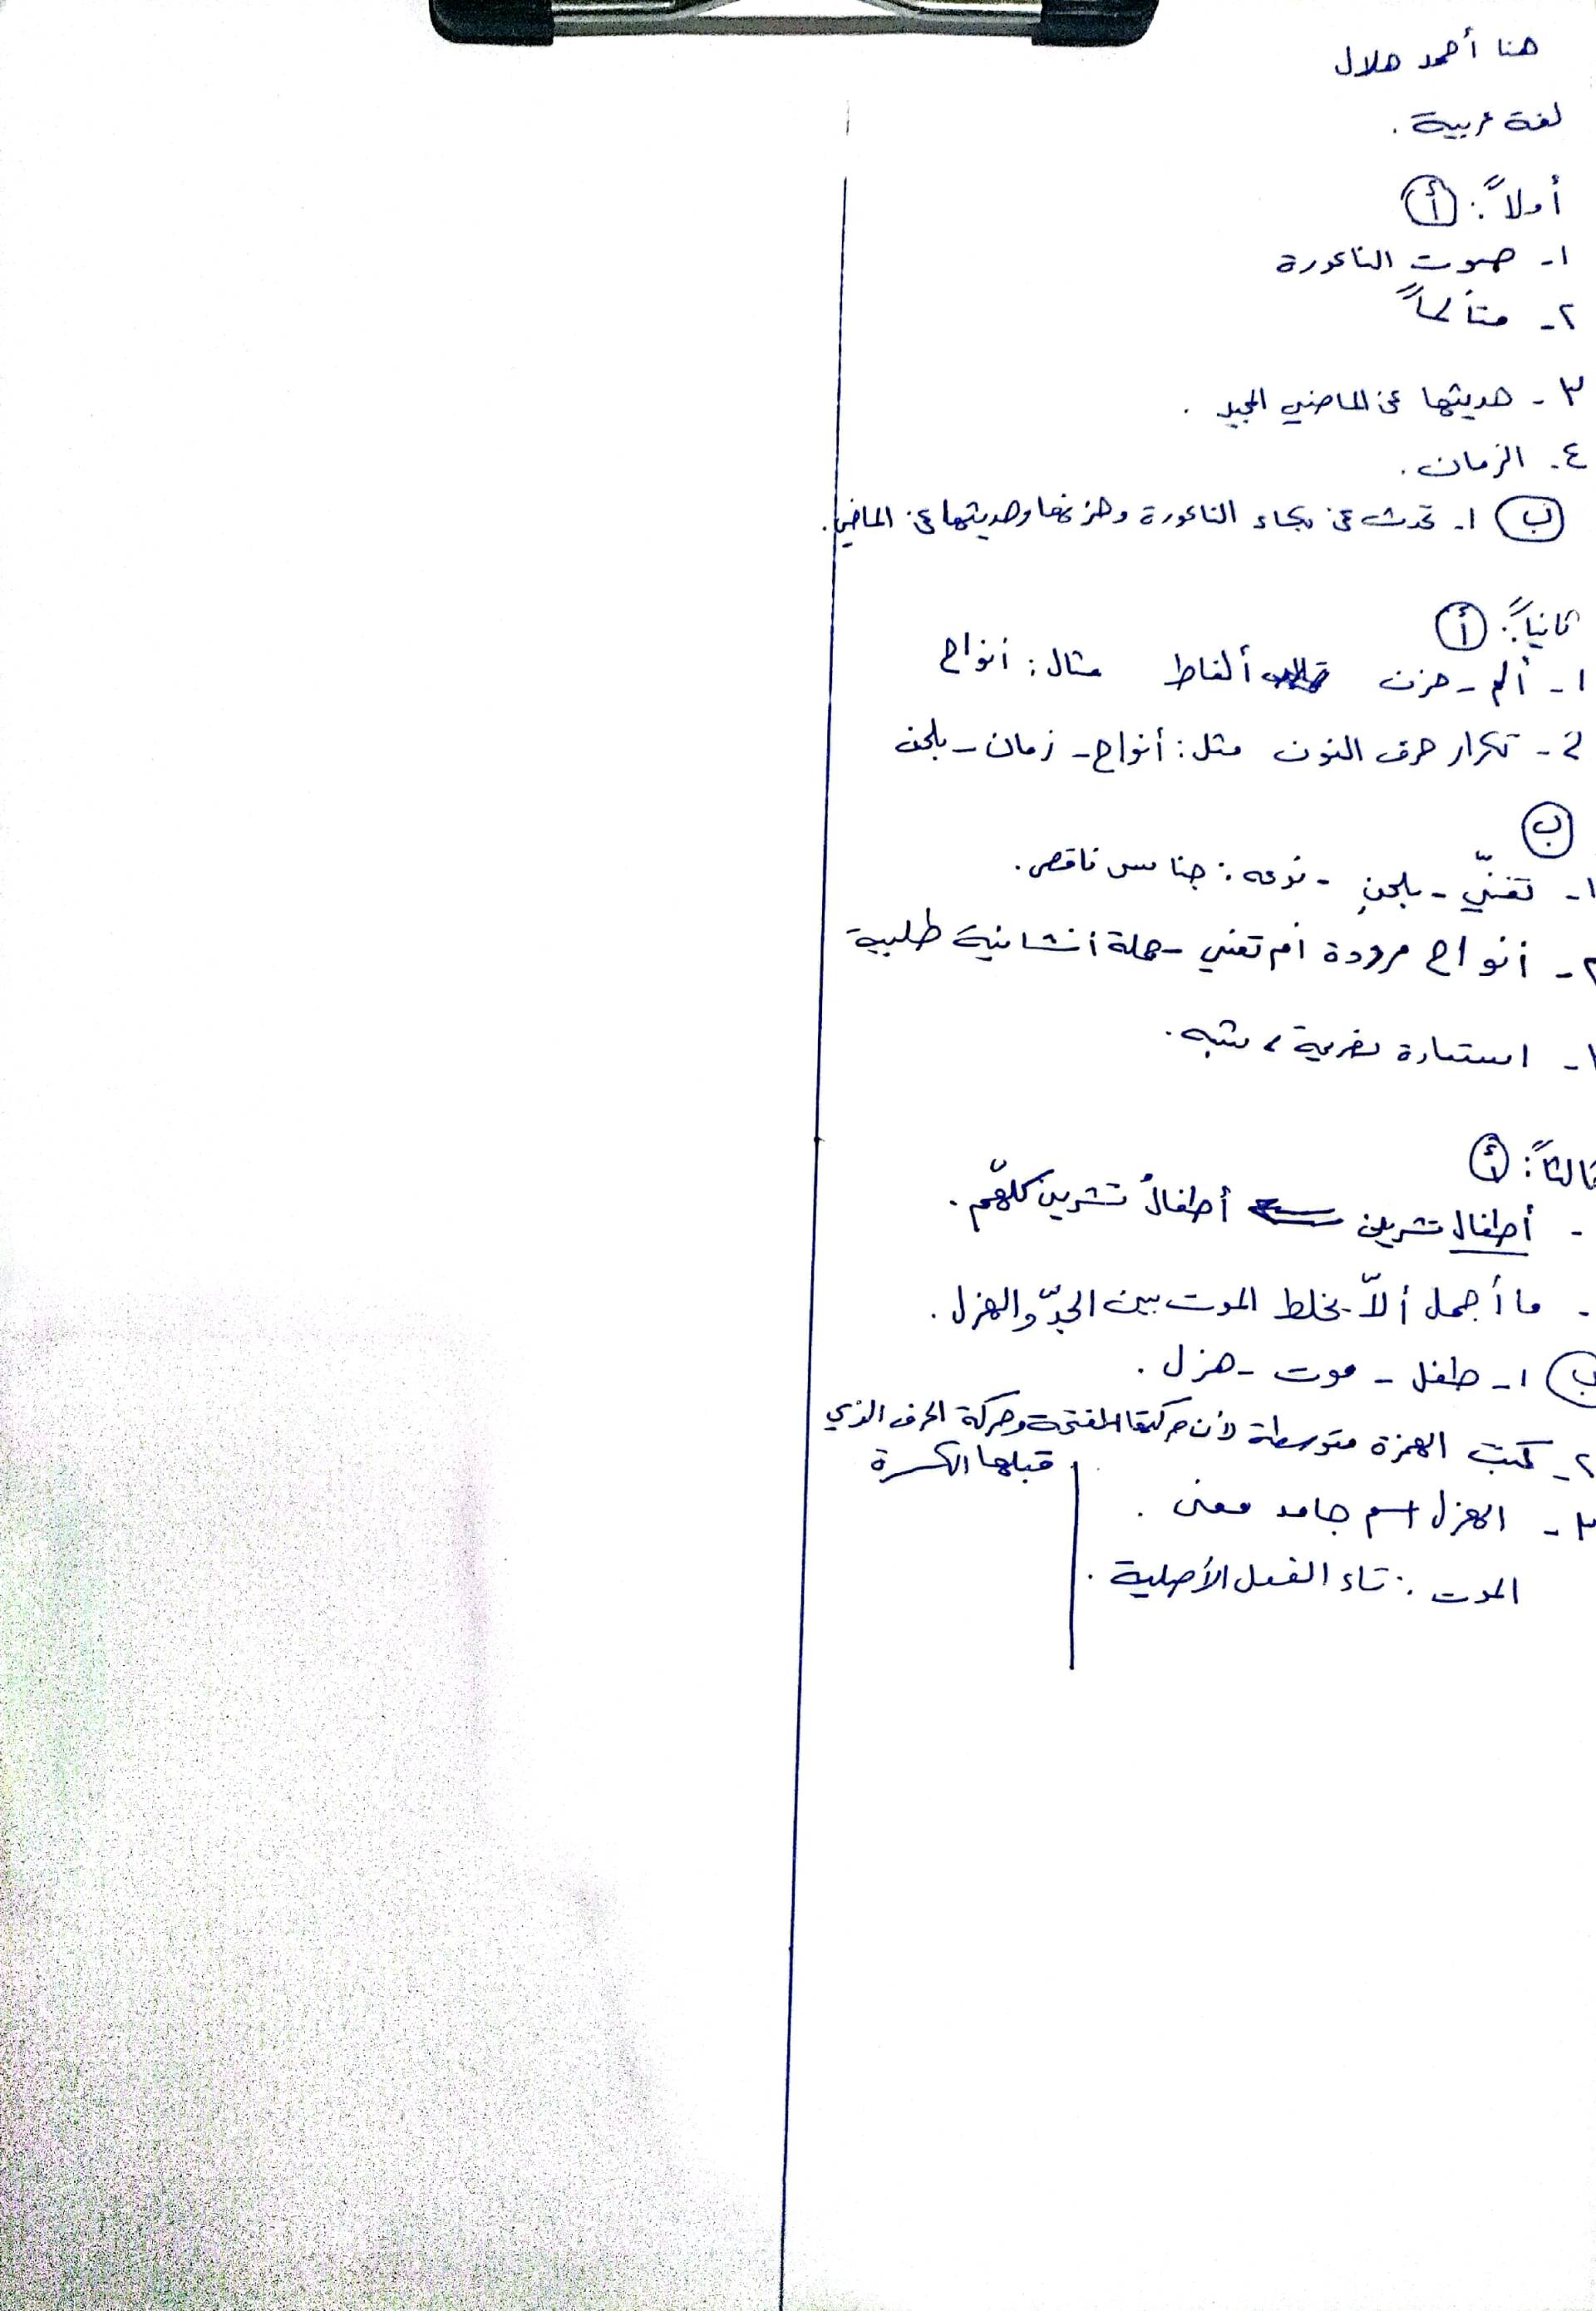 هنا أحمد هلال
لغة عربية .
أولاً : أ
١- صوت الناعورة
٢- متألماً
٣- حديثها عن الماضي المجيد .
٤- الزمان .
ب ١- تحدث عن بكاء الناعورة وحزنها وحديثها عن الماضي .
ثانياً : أ
١- ألم - حزن ألفاظ مثال : أنواح
٢- تكرار حرف النون مثل : أنواح - زمان - بلحن
ب
١- تغنّي - بلحنٍ - نوعه : جناس ناقص .
٢- أنواح مرددة أم تغني - جملة إنشائية طلبية
١- استعارة تصريحية ، شبه .
ثالثاً : أ
- أطفال تشرين أطفالُ تشرين كلهّم .
- ما أجمل ألاّ يخلط الموت بين الجدّ والهزل .
ب ١- طفل - موت - هزل .
٢- كتبت الهمزة متوسطة لأن حركتها الفتحة وحركة الحرف الذي
قبلها الكسرة
٣- الهزل اسم جامد معنى .
الموت : تاء الفعل الأصلية .